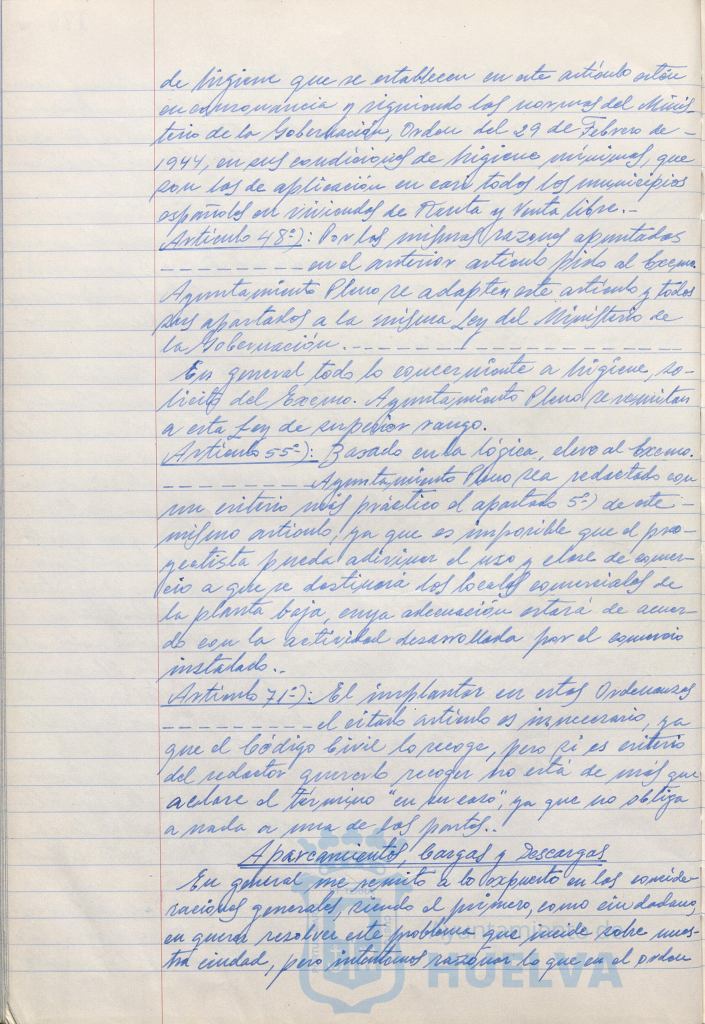 de higiene que se establecen en este artículo están
en consonancia y siguiendo las normas del Minis-
terio de la Gobernación, Orden del 29 de Febrero de -
1944, en sus condiciones de higiene mínimas, que
son las de aplicación en casi todos los municipios
españoles en viviendas de Renta y Venta libre.-
Artículo 48º): Por las mismas razones apuntadas
- - - - - - - - - en el anterior artículo pido al Excmo.
Ayuntamiento Pleno se adapten este artículo y todos
sus apartados a la misma Ley del Ministerio de
la Gobernación. - - - - - - - - - - - - - - - - - -
En general todo lo concerniente a higiene, so-
licito del Excmo. Ayuntamiento Pleno se remitan
a esta Ley de superior rango.
Artículo 55º): Basado en la lógica, elevo al Excmo.
- - - - - - - - - Ayuntamiento Pleno sea redactado con
un criterio más práctico el apartado 5º) de este -
mismo artículo, ya que es imposible que el pro-
yectista pueda adivinar el uso y clase de comer-
cio a que se destinará los locales comerciales de
la planta baja, cuya adecuación estará de acuer-
do con la actividad desarrollada por el comercio
instalado..
Artículo 71º): El implantar en estas Ordenanzas
- - - - - - - - - el citado artículo es innecesario, ya
que el Código Civil lo recoge, pero si es criterio
del redactor quererlo recoger no está de más que
aclare el término "en su caso", ya que no obliga
a nada a una de las partes..
Aparcamientos, Cargas y Descargas
En general me remito a lo expuesto en las conside-
raciones generales, siendo el primero, como ciudadano,
en querer resolver este problema que incide sobre nues-
tra ciudad, pero intentamos razonar lo que en el orden
Ayuntamiento de
HUELVA